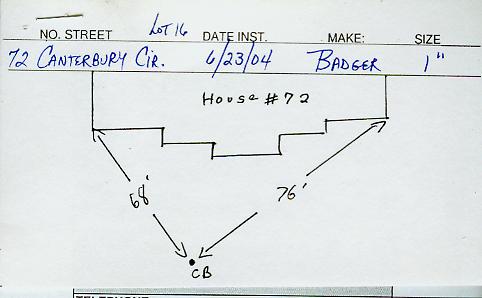 Lot 16
NO. STREET DATE INST. MAKE: SIZE
72 Canterbury Cir. 6/23/04 Badger 1"
House #72
68' 76'
CB